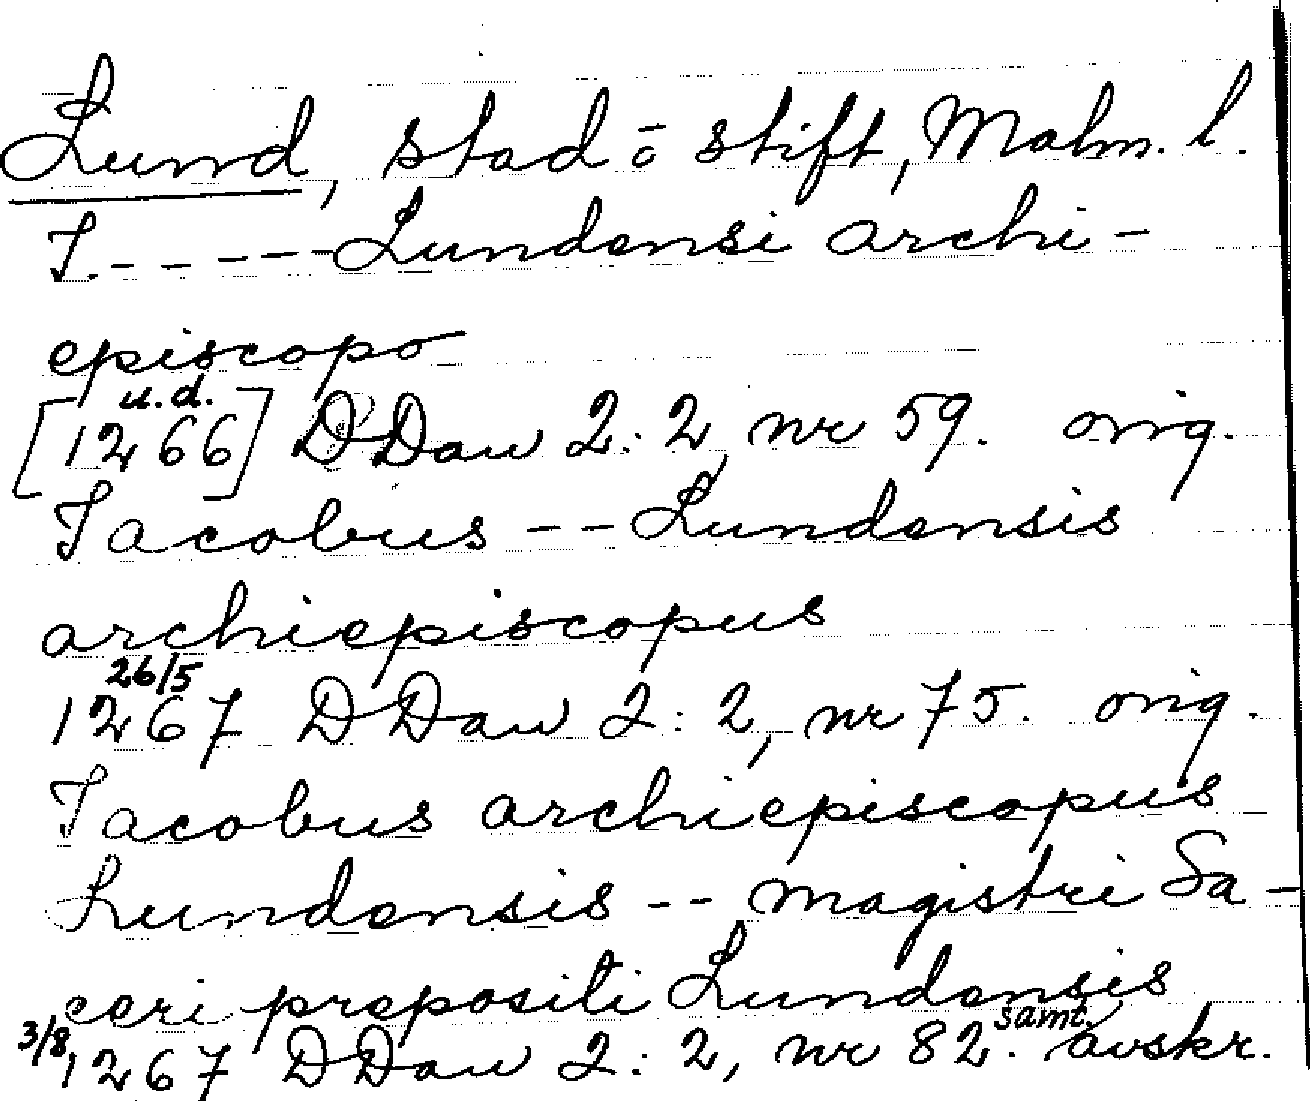 Lund, stad o stift, Malm. l.
J. - - - - - Lundensi archi-
episcopo
u.d.
[1266] DDan 2:2, nr 59. orig.
Jacobus - - Lundensis
archiepiscopus
26/5
1267 DDan 2:2, nr 75. orig.
Jacobus archiepiscopus
Lundensis - - magistri Sa-
ceri prepositi Lundensis
3/8 1267 DDan 2:2, nr 82. samt. avskr.